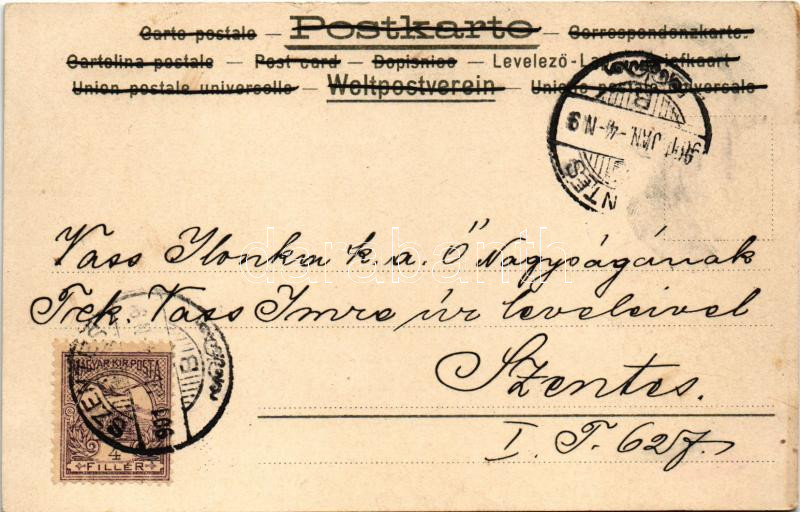 Carte postale — Postkarte — Correspondenzkarte.
Cartolina postale — Post card — Dopisnice — Levelező-Lap — Briefkaart
Union postale universelle — Weltpostverein — Unione postale universale
901 JAN.-4.-N 9
NTES
Vass Ilonka k. a. Ő Nagyságának
Tek. Vass Imre úr leveleivel
Szentes.
I. T. 627.
MAGYAR KIR. POSTA
4
FILLÉR
darabanth